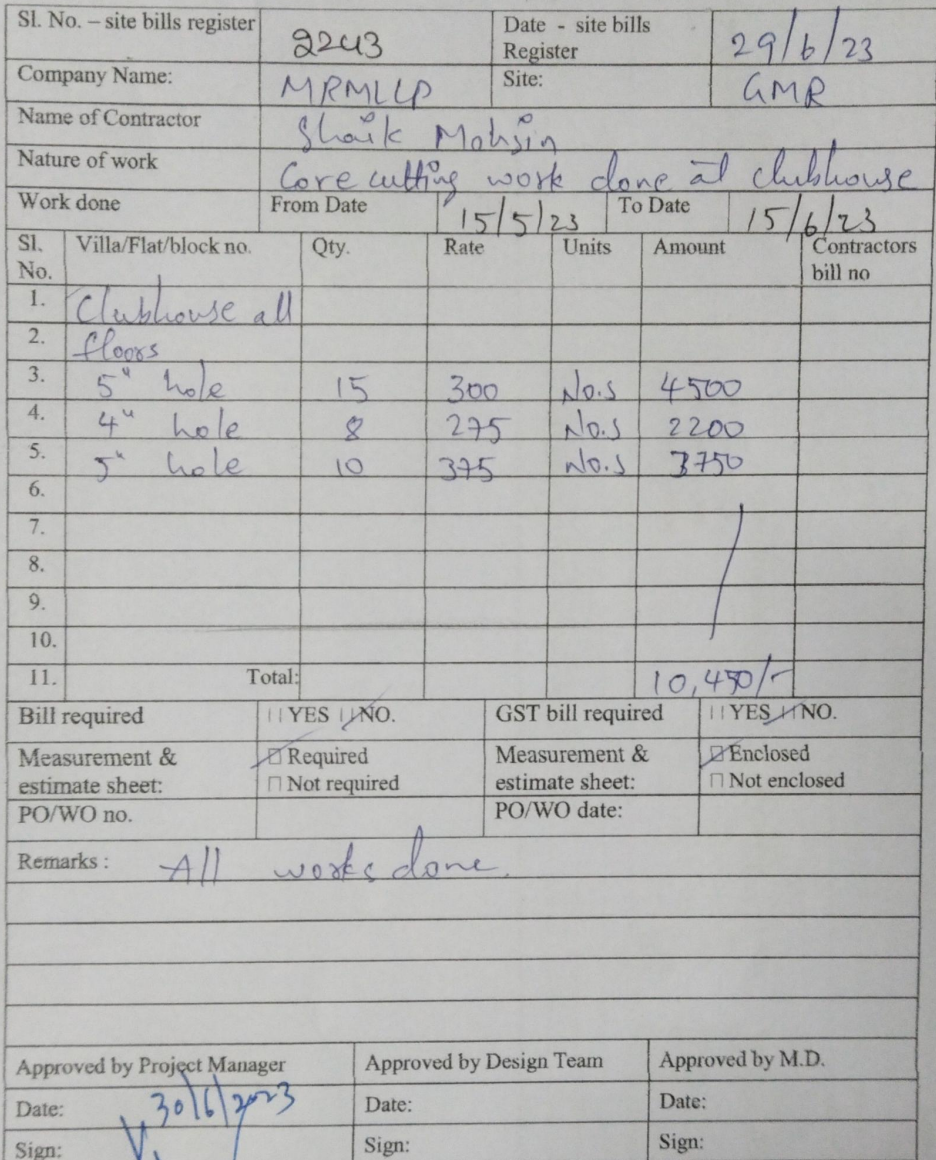 Sl. No. – site bills register 2243 Date - site bills Register 29/6/23
Company Name: MRMLLP Site: GMR
Name of Contractor Shaik Mohsin
Nature of work Core cutting work done at clubhouse
Work done From Date 15/5/23 To Date 15/6/23
Sl. No. Villa/Flat/block no. Qty. Rate Units Amount Contractors bill no
1. Clubhouse all
2. floors
3. 5" hole 15 300 No.s 4500
4. 4" hole 8 275 No.s 2200
5. 5" hole 10 375 No.s 3750
6.
7.
8.
9.
10.
11. Total: 10,450/-
Bill required YES NO. GST bill required YES NO.
Measurement & estimate sheet: Required Measurement & estimate sheet: Enclosed
Not required Not enclosed
PO/WO no. PO/WO date:
Remarks : All works done.
Approved by Project Manager Approved by Design Team Approved by M.D.
Date: 30/6/2023 Date: Date:
Sign: Sign: Sign: